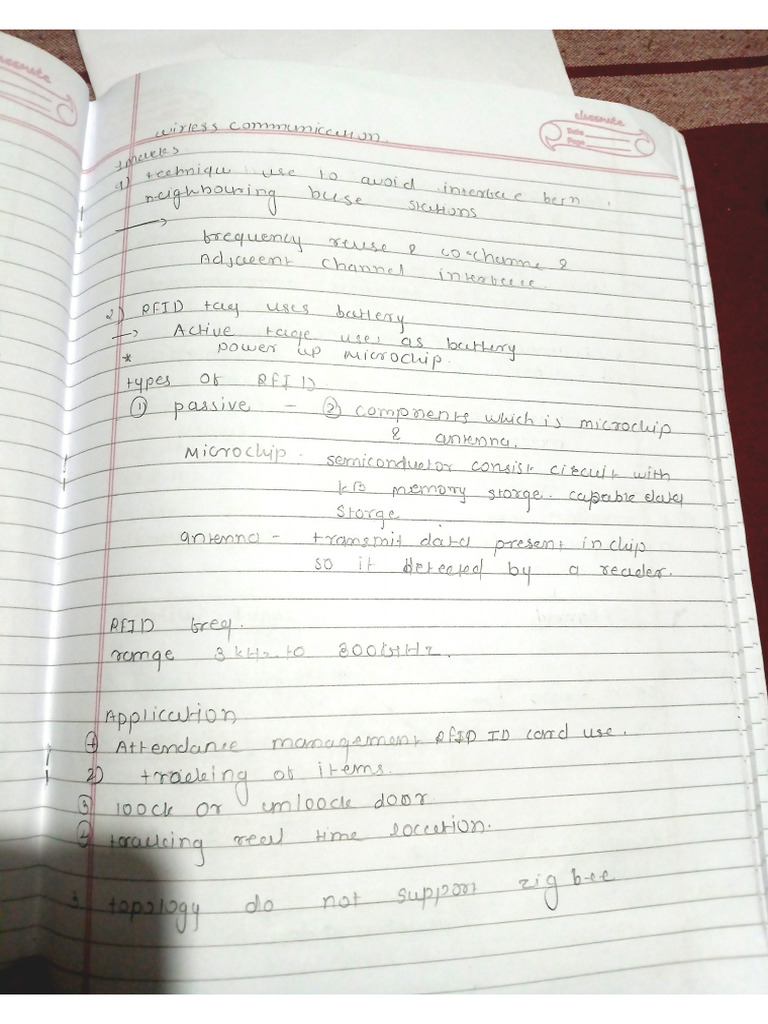 classmate
Date
Page
wirless communication.
1) technique use to avoid interface betn
neighbouring base stations
→ frequency reuse & co-channel &
Adjacent channel interface
2) RFID tag uses battery
→ Active tage uses as battery
* power up microchip.
types of RFID
① passive - ② components which is microchip
& antenna.
Microchip. semiconductor consist circuit with
KB memory storge. capable data
storge
antenna - transmit data present in chip
so it detected by a reader.
RFID freq.
range 3 kHz to 300 GHz.
Application
① Attendance management RFID ID card use.
2) tracking of items.
③ loock or unloock door.
④ traulcing real time loccation.
3. topology do not support zig bee